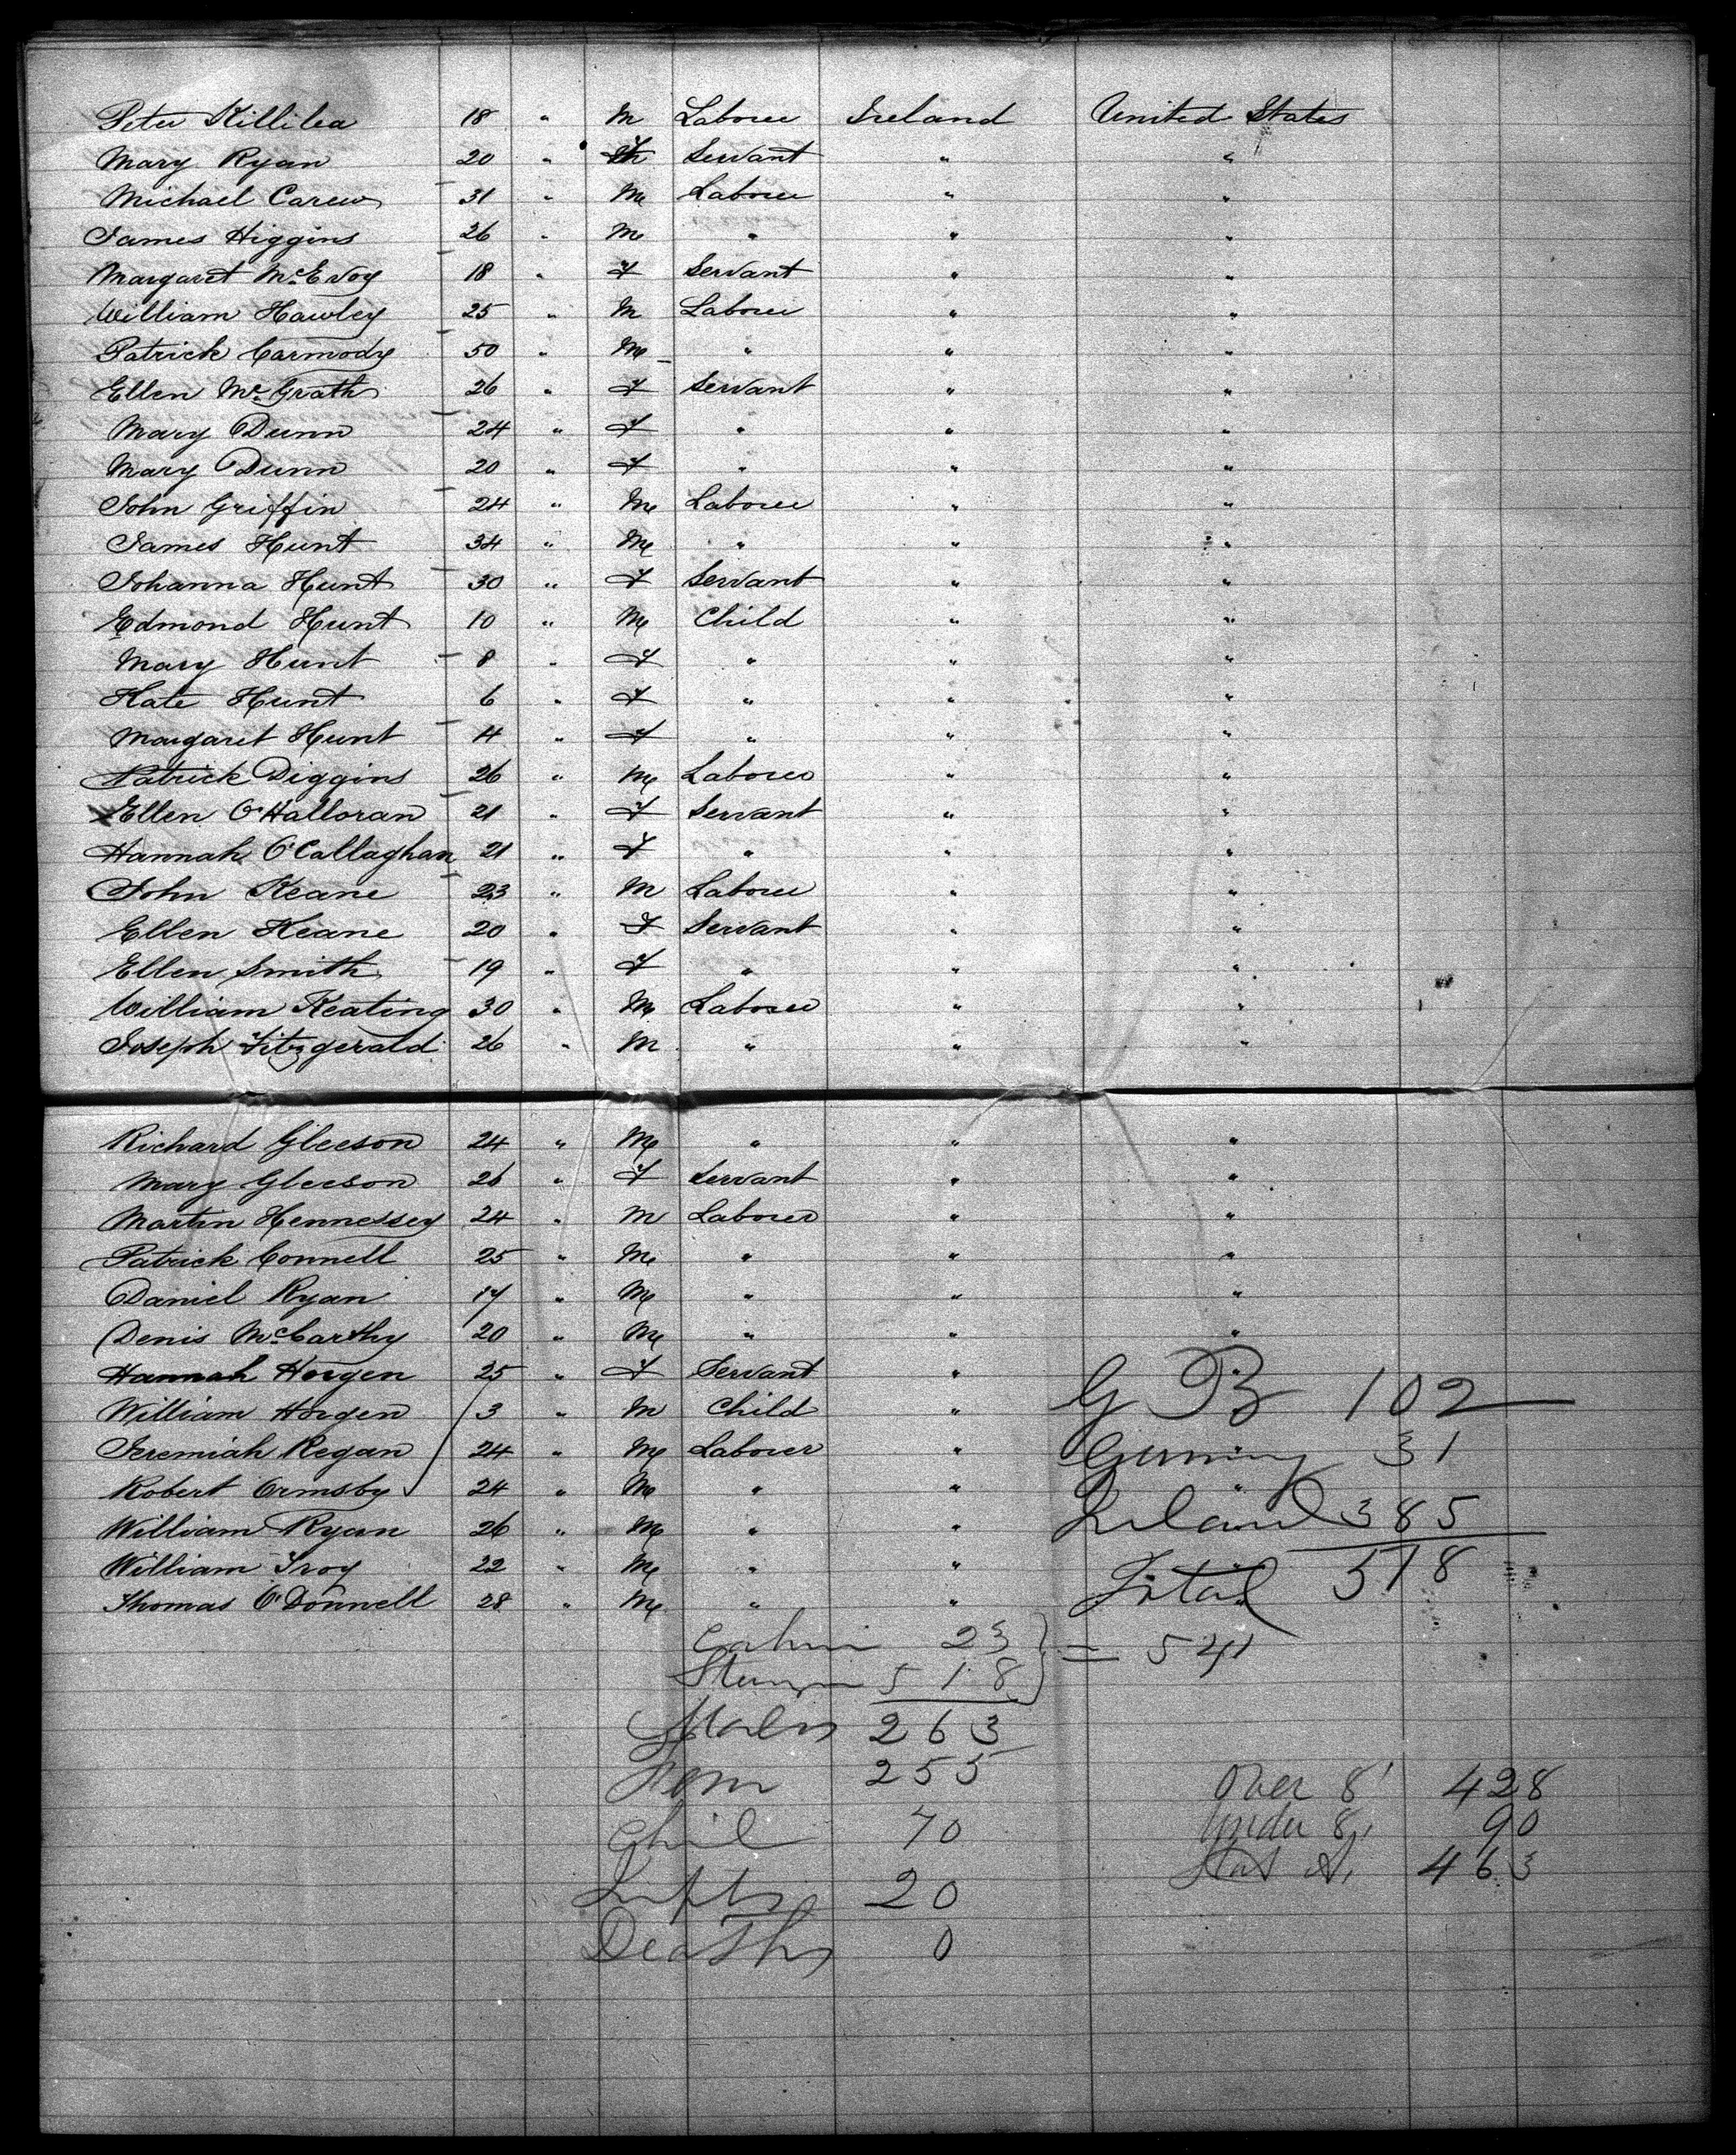 Peter Killilea 18 " M Laborer Ireland United States
Mary Ryan 20 " Servant " "
Michael Carew 31 " M Laborer " "
James Higgins 26 " M " " "
Margaret McEvoy 18 " F Servant " "
William Hawley 25 " M Laborer " "
Patrick Carmody 50 " M " " "
Ellen McGrath 26 " F Servant " "
Mary Dunn 24 " F " " "
Mary Dunn 20 " F " " "
John Griffin 24 " M Laborer " "
James Hunt 34 " M " " "
Johanna Hunt 30 " F Servant " "
Edmond Hunt 10 " M Child " "
Mary Hunt 8 " F " " "
Kate Hunt 6 " F " " "
Margaret Hunt 4 " F " " "
Patrick Diggins 26 " M Laborer " "
Ellen O'Halloran 21 " F Servant " "
Hannah O'Callaghan 21 " F " " "
John Keane 23 " M Laborer " "
Ellen Keane 20 " F Servant " "
Ellen Smith 19 " F " " "
William Keating 30 " M Laborer " "
Joseph Fitzgerald 26 " M " " "
Richard Gleeson 24 " M " " "
Mary Gleeson 26 " F Servant " "
Martin Hennessey 24 " M Laborer " "
Patrick Connell 25 " M " " "
Daniel Ryan 17 " M " " "
Denis McCarthy 20 " M " " "
Hannah Horgen 25 " F Servant "
William Horgen 3 " M Child "
Jeremiah Regan 24 " M Laborer "
Robert Ormsby 24 " M " "
William Ryan 26 " M " "
William Troy 22 " M " "
Thomas O'Donnell 28 " M " "
G B 102
Germany 31
Ireland 385
Total 518
Cabin 23 } = 541
518
Males 263
Fem 255
Chil 70
Infts 20
Deaths 0
Over 8 428
Under 8 90
Stat A. 463